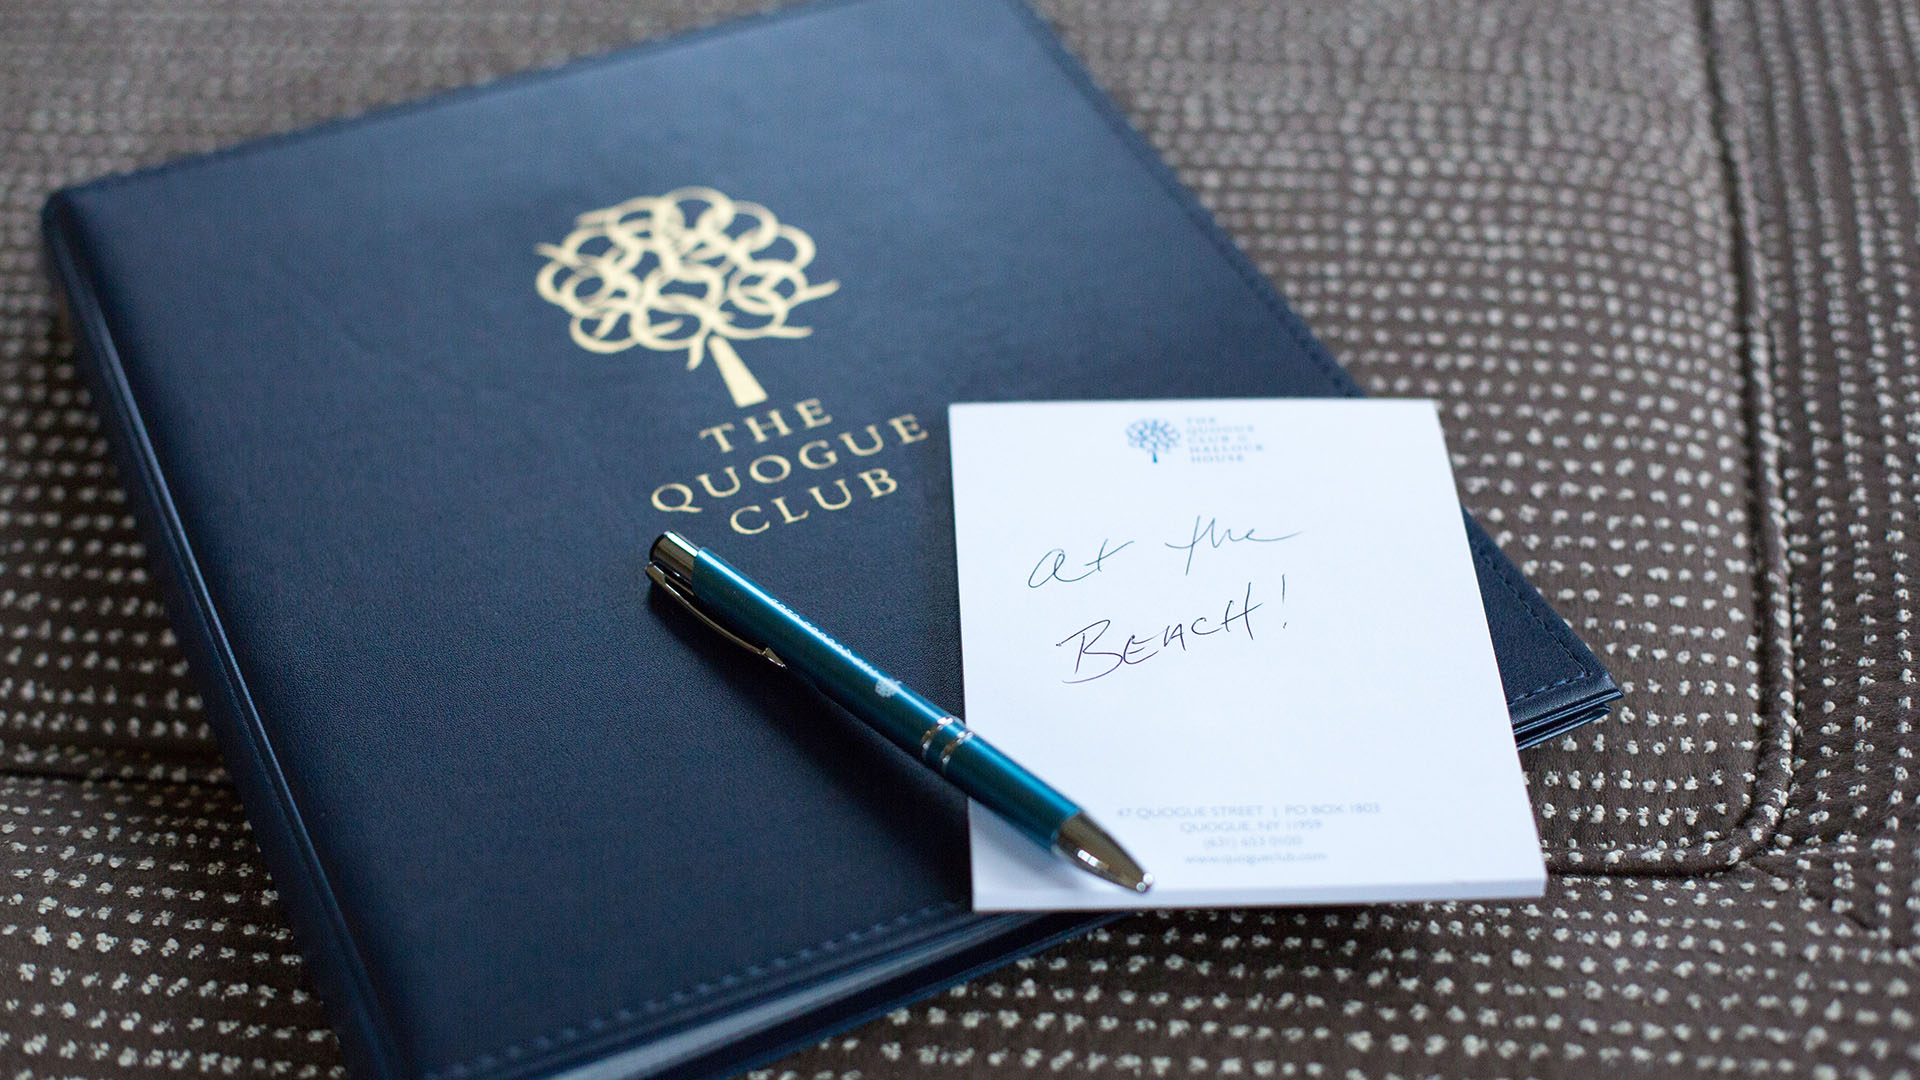 THE
QUOGUE
CLUB
THE
QUOGUE
CLUB @
HALLOCK
HOUSE
at the
BEACH!
47 QUOGUE STREET | PO BOX 1803
QUOGUE, NY 11959
(631) 653 0100
www.quogueclub.com